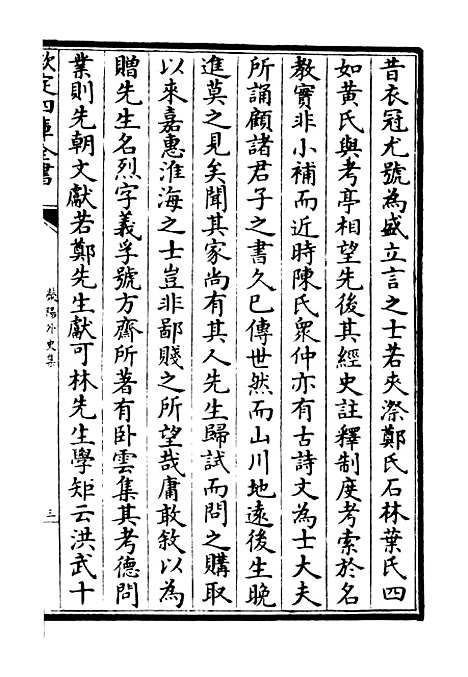 昔衣冠尤號為盛立言之士若夾漈鄭氏石林葉氏四
如黄氏與考亭相望先後其經史註釋制度考索於名
教實非小補而近時陳氏衆仲亦有古詩文為士大夫
所誦顧諸君子之書久已傳世然而山川地遠後生晚
進莫之見矣聞其家尚有其人先生歸試而問之購取
以來嘉惠淮海之士豈非鄙賤之所望哉庸敢敘以為
贈先生名烈字義孚號方齋所著有卧雲集其考德問
業則先朝文獻若鄭先生獻可林先生學矩云洪武十
欽定四庫全書
滎陽外史集
三